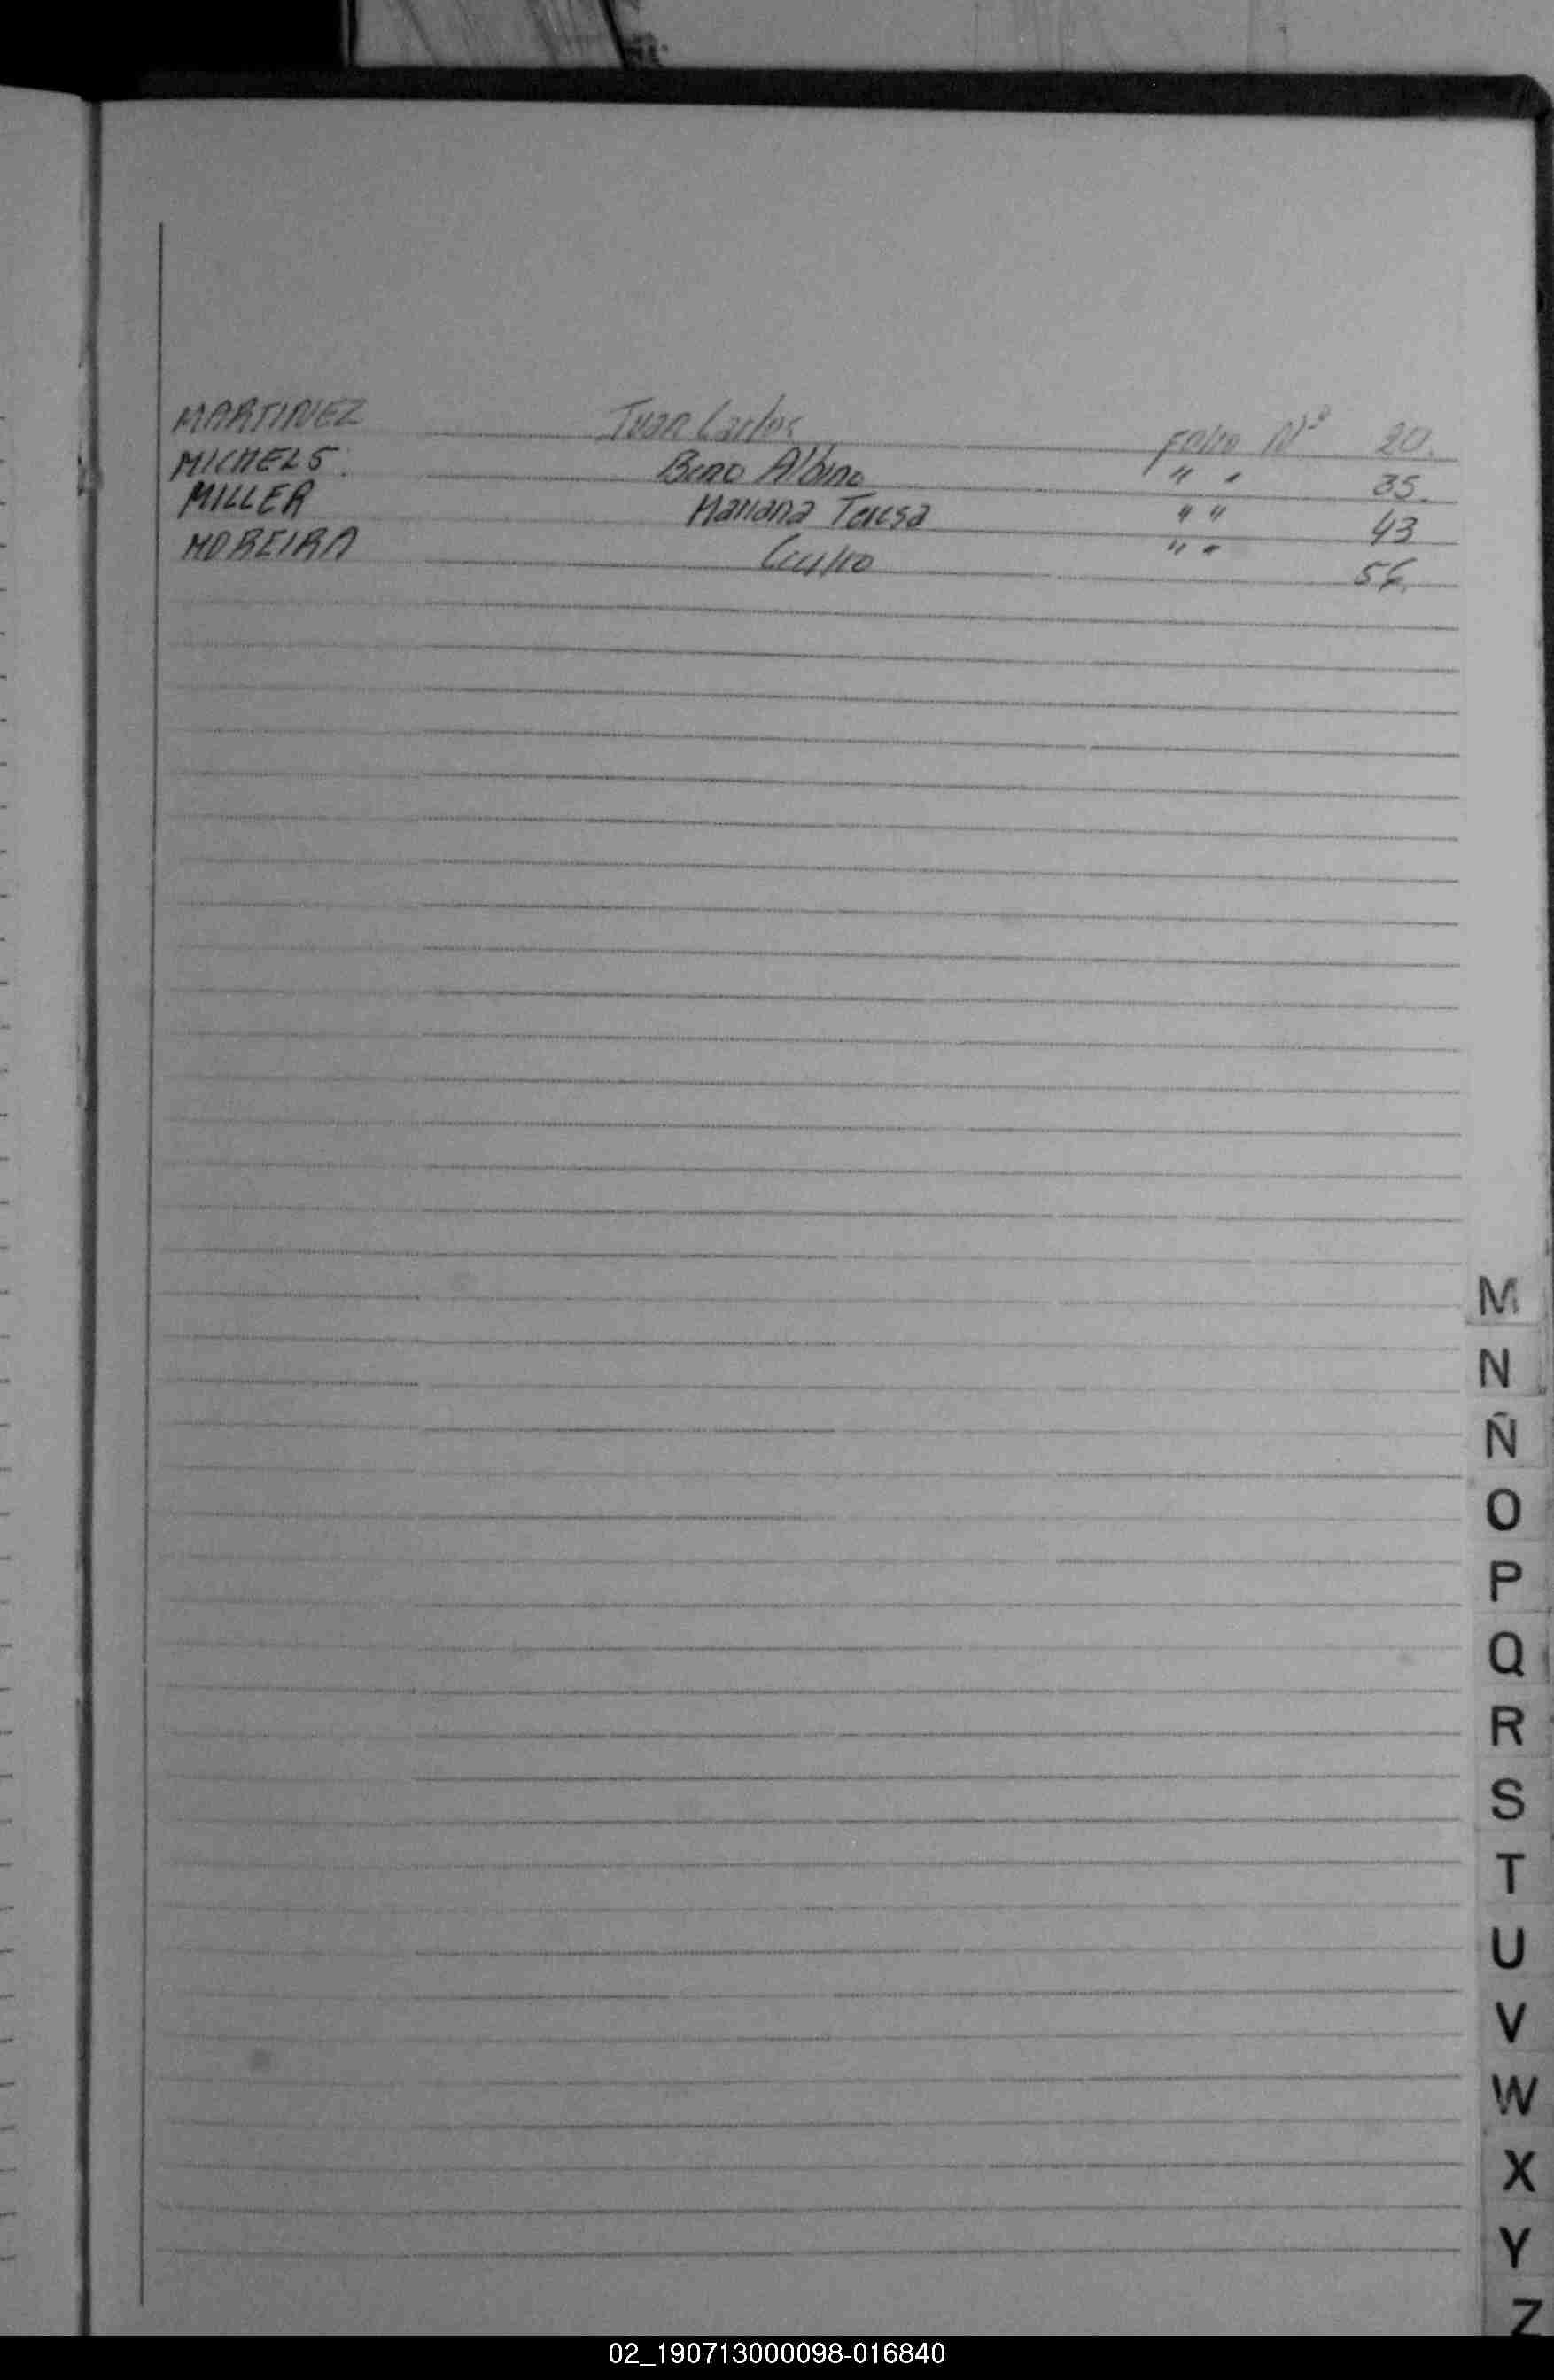 MARTINEZ Juan Carlos Folio Nº 20.
MICHELS. Beno Albino " " 35.
MILLER Mariana Teresa " " 43
MOREIRA " " 56.
M
N
Ñ
O
P
Q
R
S
T
U
V
W
X
Y
Z
02_190713000098-016840